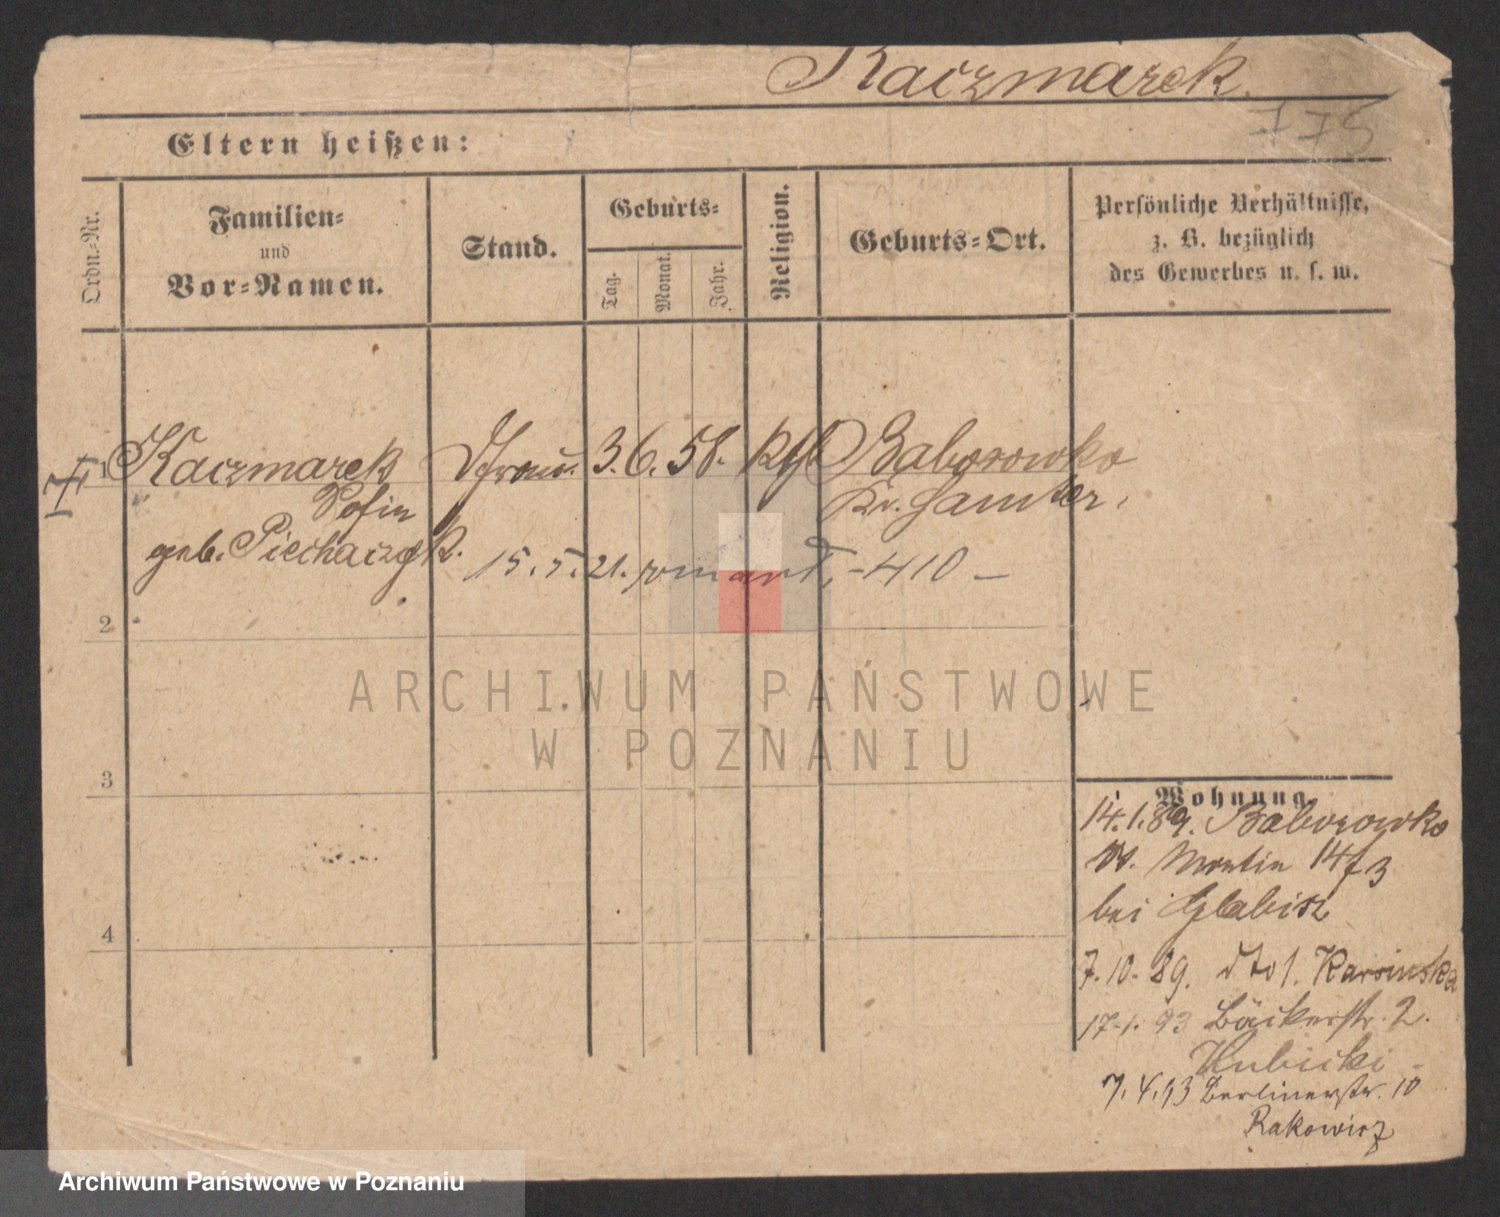 Kaczmarek.
775
Eltern heißen:
Ordn.-Nr.
Familien-
und
Vor-Namen.
Stand.
Geburts-
Tag.
Monat.
Jahr.
Religion.
Geburts-Ort.
Persönliche Verhältnisse,
z. B. bezüglich
des Gewerbes u. s. w.
1 Kaczmarek Frau 3. 6. 58. Kth Baborowko
Sofie Kr. Samter,
geb. Piechaczyk.
15. 5. 21. -410-
2
3
4
ARCHIWUM PAŃSTWOWE
W POZNANIU
Wohnung
14. 1. 89. Baborowko
St. Martin 14/3
bei Glabisz
7. 10. 89. dto 1. Karsinska
17. 1. 93 Bäckerstr. 2.
Kubicki
7. 4. 93 Berlinerstr. 10
Rakowicz
Archiwum Państwowe w Poznaniu